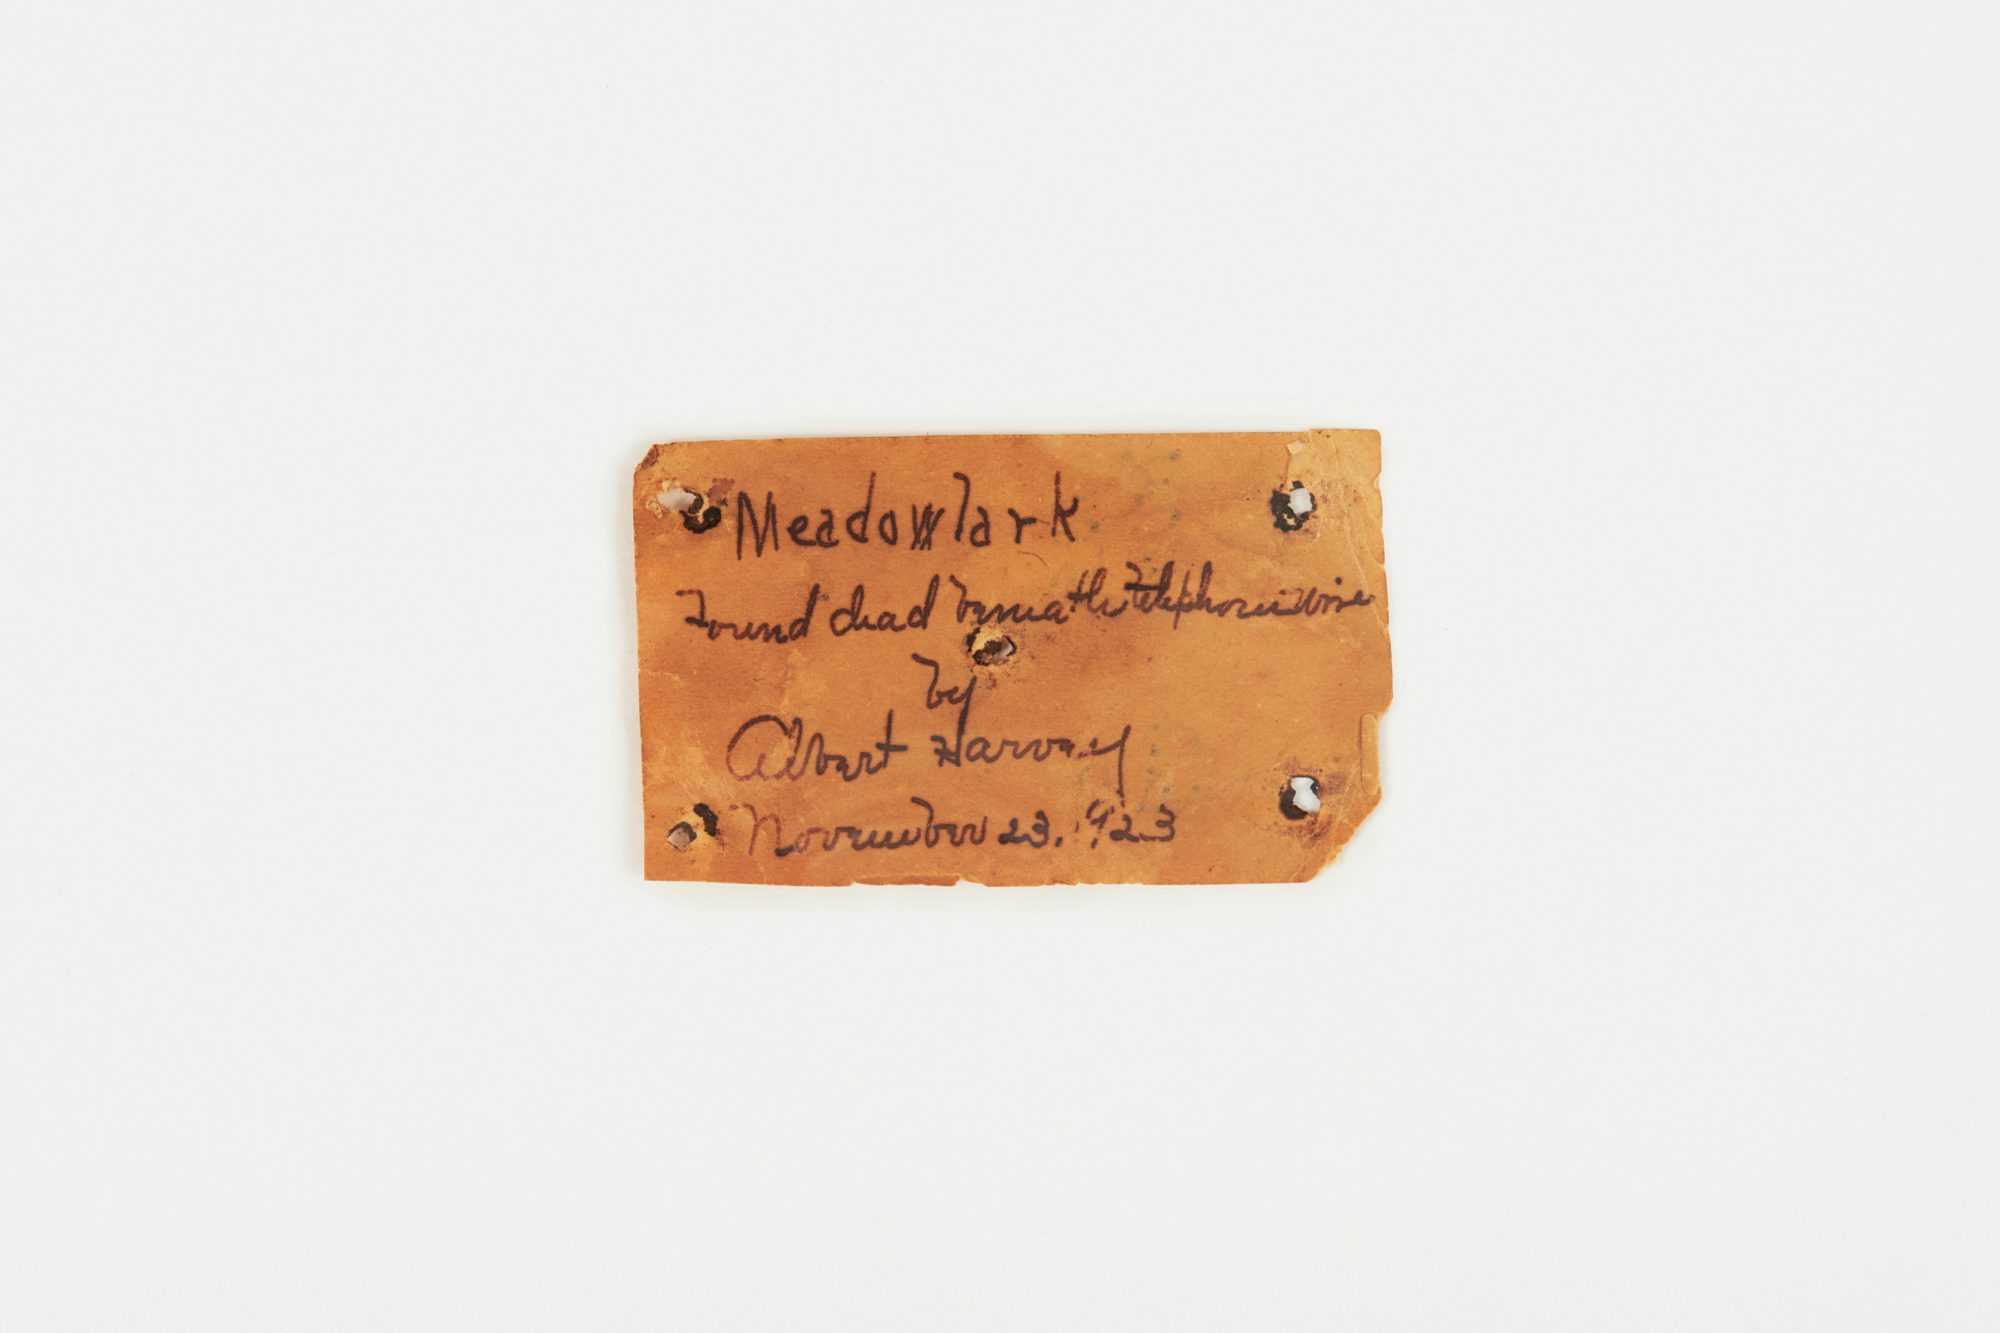 Meadowlark
Found dead beneath telephone wire
by
Albert Harvey
November 23, 1923